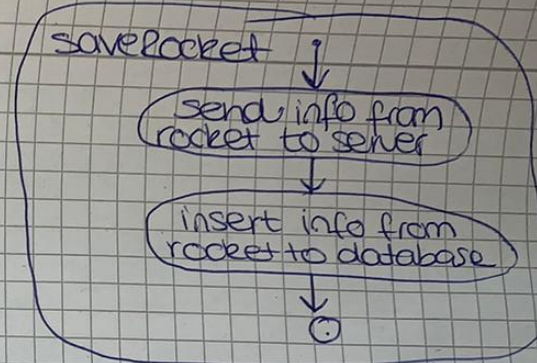 saveRocket
send info from
rocket to server
insert info from
rocket to database